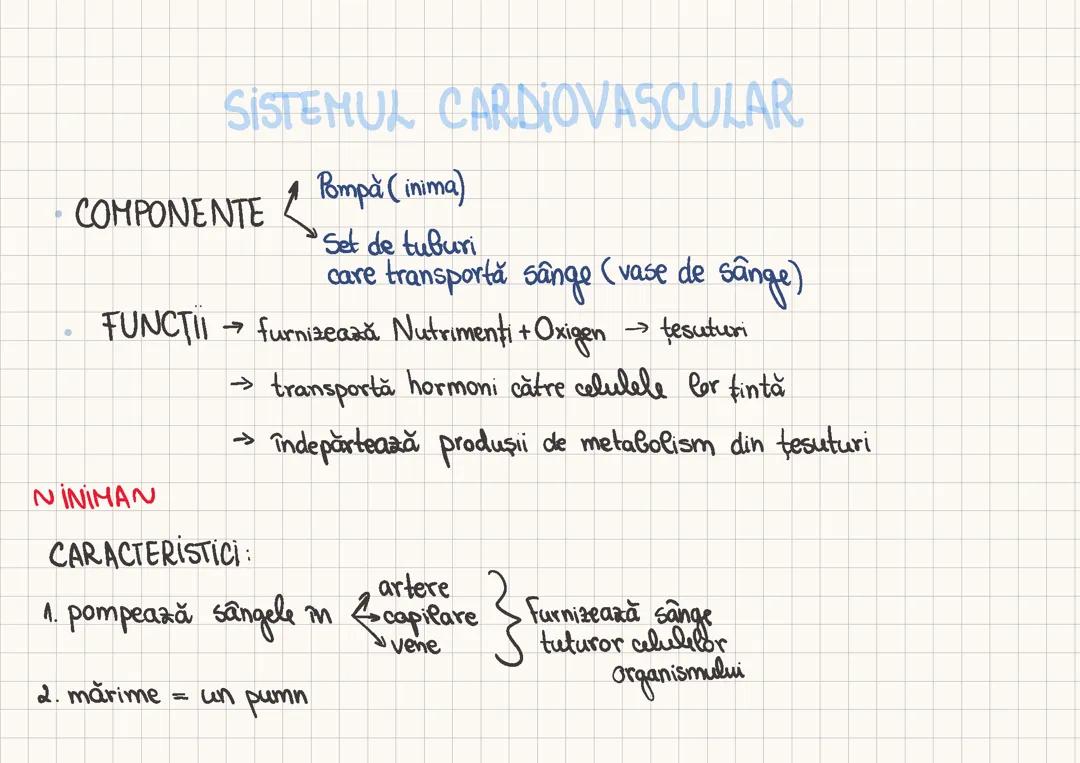 SISTEMUL CARDIOVASCULAR
• COMPONENTE
Pompă (inima)
Set de tuburi
care transportă sânge (vase de sânge)
• FUNCȚII → furnizează Nutrimenți + Oxigen → țesuturi
→ transportă hormoni către celulele lor țintă
→ îndepărtează produșii de metabolism din țesuturi
~ INIMA ~
CARACTERISTICI:
1. pompează sângele în
artere
capilare
vene
furnizează sânge
tuturor celulelor
organismului
2. mărime = un pumn